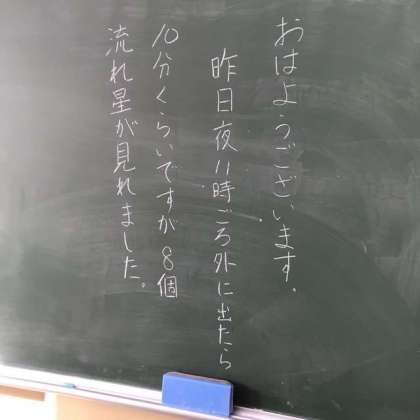 おはようございます.
昨日夜11時ごろ外に出たら
10分くらいですが8個
流れ星が見れました。